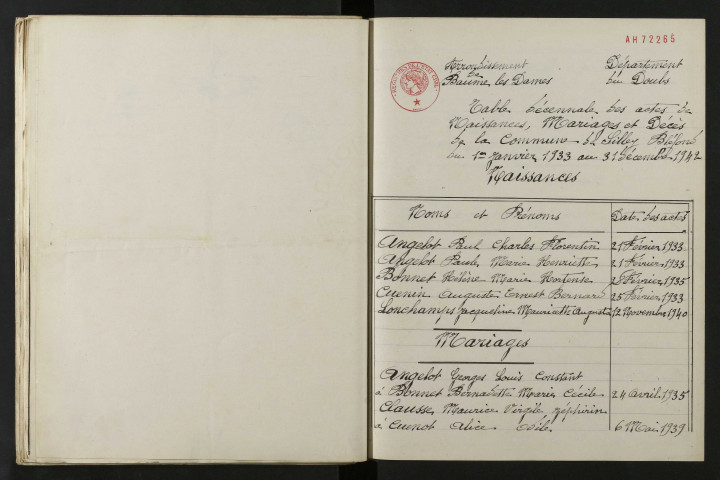 AH72265
Arrondissement
de
Baume les Dames
Département
du Doubs
Table décennale des actes de
Naissances, Mariages et Décès
de la Commune de Silley Bléfond
du 1er Janvier 1933 au 31 décembre 1942
Naissances
Noms et Prénoms Dates des actes
Angelot Paul Charles Florentin 21 Février 1933
Angelot Paule Marie Henriette 21 Février 1933
Bonnet Hélène Marie Hortense Février 1935
Cuenin Auguste Ernest Bernard 25 Février 1933
Lonchamps Jacqueline Mauricette Augusta 12 Novembre 1940
Mariages
Angelot Georges Louis Constant
à Bonnet Bernadette Marie Cécile 24 Avril 1935
Clausse Maurice Virgile Zéphirin
à Cuenot Alice 6 Mai 1939